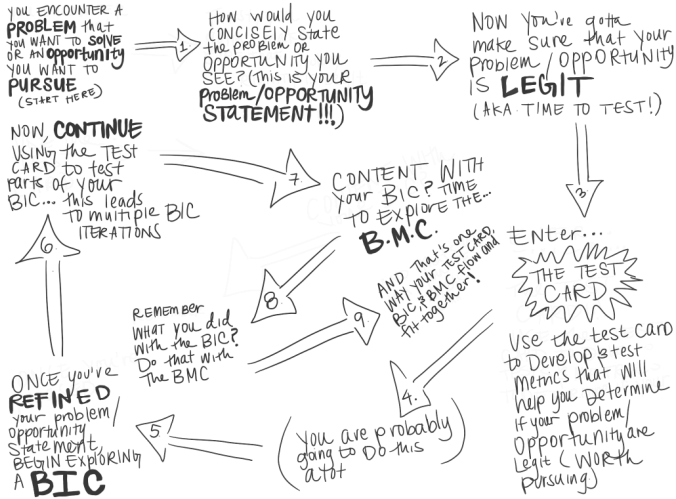 YOU ENCOUNTER A
PROBLEM that
YOU WANT TO SOLVE
OR AN OPPORTUNITY
YOU WANT TO
PURSUE
(START HERE)
1.
HOW would you
CONCISELY State
the PROBLEM OR
OPPORTUNITY YOU
SEE? (THIS IS YOUR
Problem/OPPORTUNITY
STATEMENT!!!)
2.
NOW YOU'VE gotta
make Sure that Your
Problem/OPPORTUNITY
IS LEGIT
(AKA TIME TO TEST!)
3.
Enter...
THE TEST
CARD
Use the test CARD
to Develop & test
Metrics that Will
help you Determine
if your problem/
Opportunity are
Legit (WORTH
Pursuing)
4.
(You are probably
going to Do this
alot)
5.
ONCE you've
REFINED
your problem/
Opportunity
Statement,
BEGIN EXPLORING
A BIC
6
NOW, CONTINUE
USING the TEST
CARD to test
Parts of Your
BIC... this leads
TO multiple BIC
ITERATIONS
7.
CONTENT WITH
Your BIC? TIME
TO EXPLORE THE...
B.M.C.
8.
REMEMBER
WHAT you did
With the BIC?
Do that with
The BMC
9.
AND that's one
WAY Your TEST CARD,
BIC, & BMC flow and
fit together!